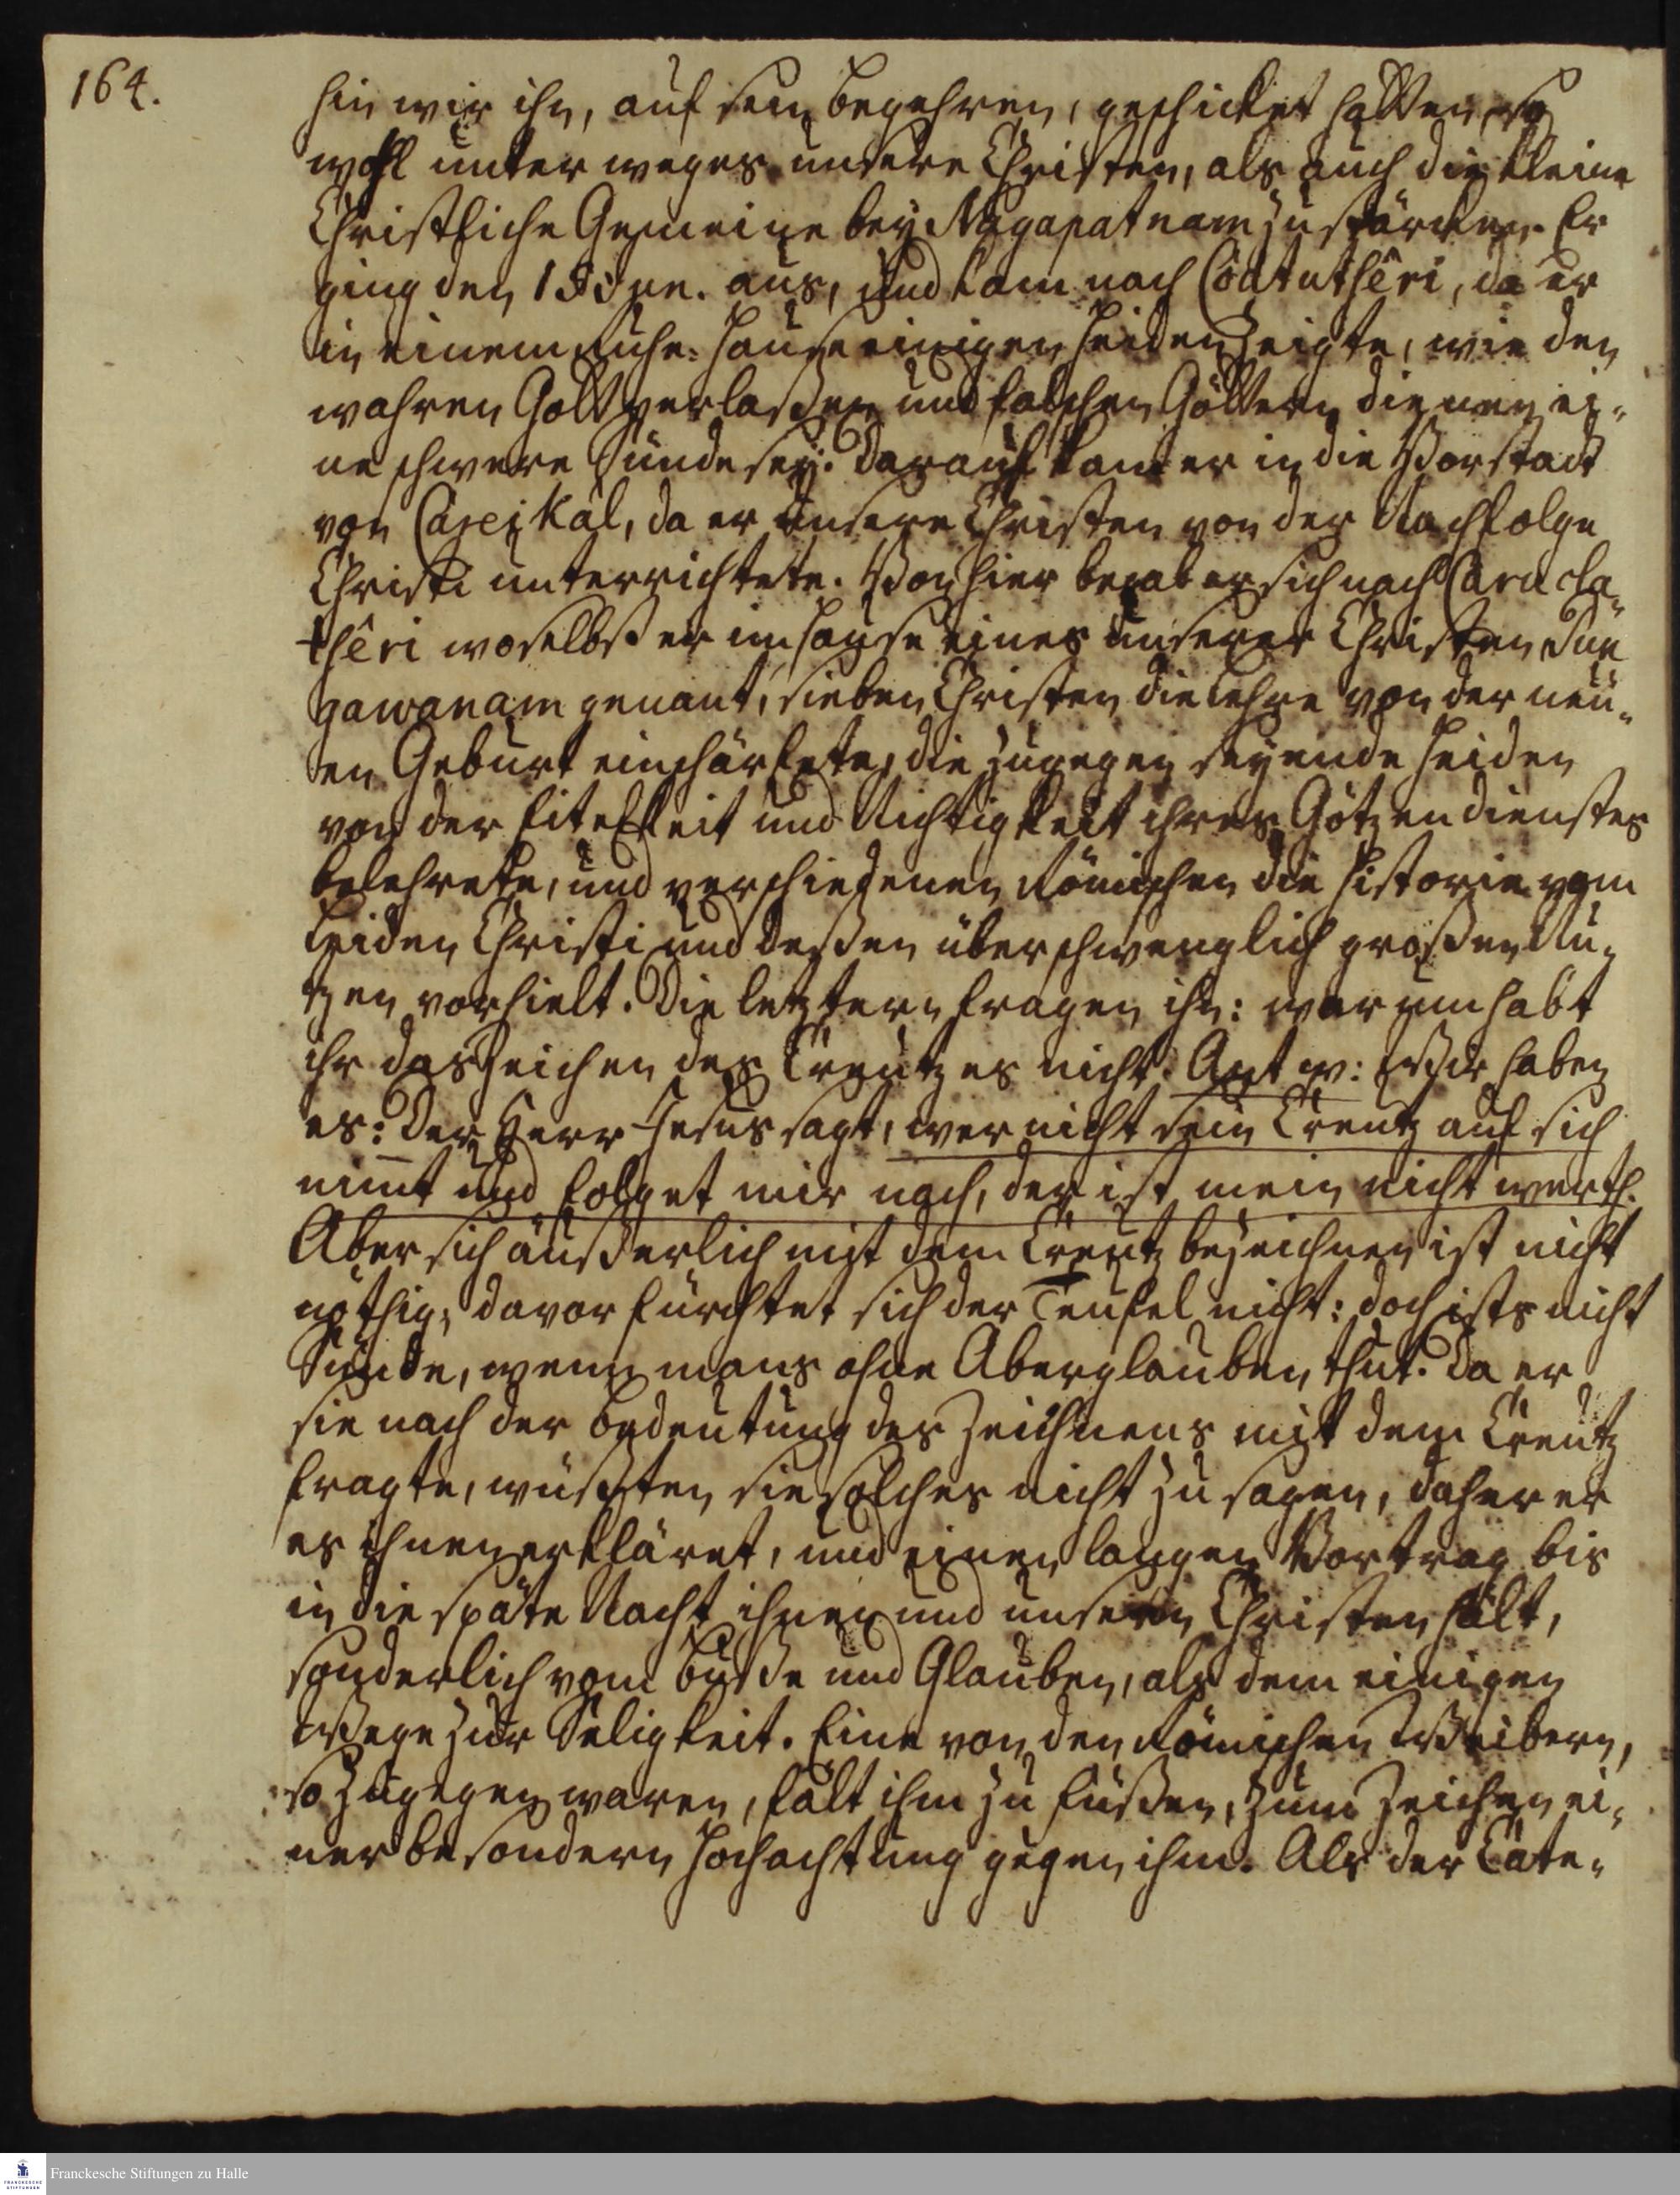 164.
hin wir ihn, auf sein Begehren, geschicket hatten, so
wohl unterweges unsere Christen, als auch die kleine
Christliche Gemeine bey Nagapatnam zu stärcken. Er
ging den aus, und kam nach Codtutschêri, da er
in einem Ruhe-Hause einigen Heiden zeigte, wie den
wahren Gott verlaßen und falschen Göttern dienen ei-
ne schwere Sünde sey. Darauf kam er in die Vorstadt
von Careikâl, da er unsere Christen von der Nachfolge
Christi unterrichtete. Von hier begab er sich nach Caru cla-
tschêri woselbst er im Hause eines unserer Christen
gawanam genant, sieben Christen die Lehre von der neu-
en Geburt einschärfete, die zugegen seyende Heiden
von der Eitelkeit und Nichtigkeit ihres Götzendienstes
belehrete, und verschiedenen Römischen die Historie vom
Leiden Christi und deßen überschwenglich großen Nu-
tzen vorhielt. Die letztern fragen ihn: warum habt
ihr das Zeichen des Creutzes nicht? Antw: Wir haben
es: Der Herr Jesus sagt, wer nicht sein Creutz auf sich
nimt und folget mir nach, der ist mein nicht werth.
Aber sich äußerlich mit dem Creutz bezeichnen ist nicht
nöthig, davor fürchtet sich der Teufel nicht: doch ists nicht
Sünde, wenn mans ohne Aberglauben thut. Da er
sie nach der Bedeutung des Zeichnens mit dem Creutz
fragte, wusten sie solches nicht zu sagen, daher er
es ihnen erkläret, und einen langen Vortrag bis
in die späte Nacht ihnen und unsern Christen hält,
sonderlich vom Buße und Glauben, als dem einigen
Wege zur Seligkeit. Eine von den Römischen Weibern,
so zugegen waren, fält ihm zu Füßen, zum Zeichen ei-
ner besondern Hochachtung gegen ihm. Als der Cate-
FRANCKESCHE
STIFTUNGEN
Franckesche Stiftungen zu Halle